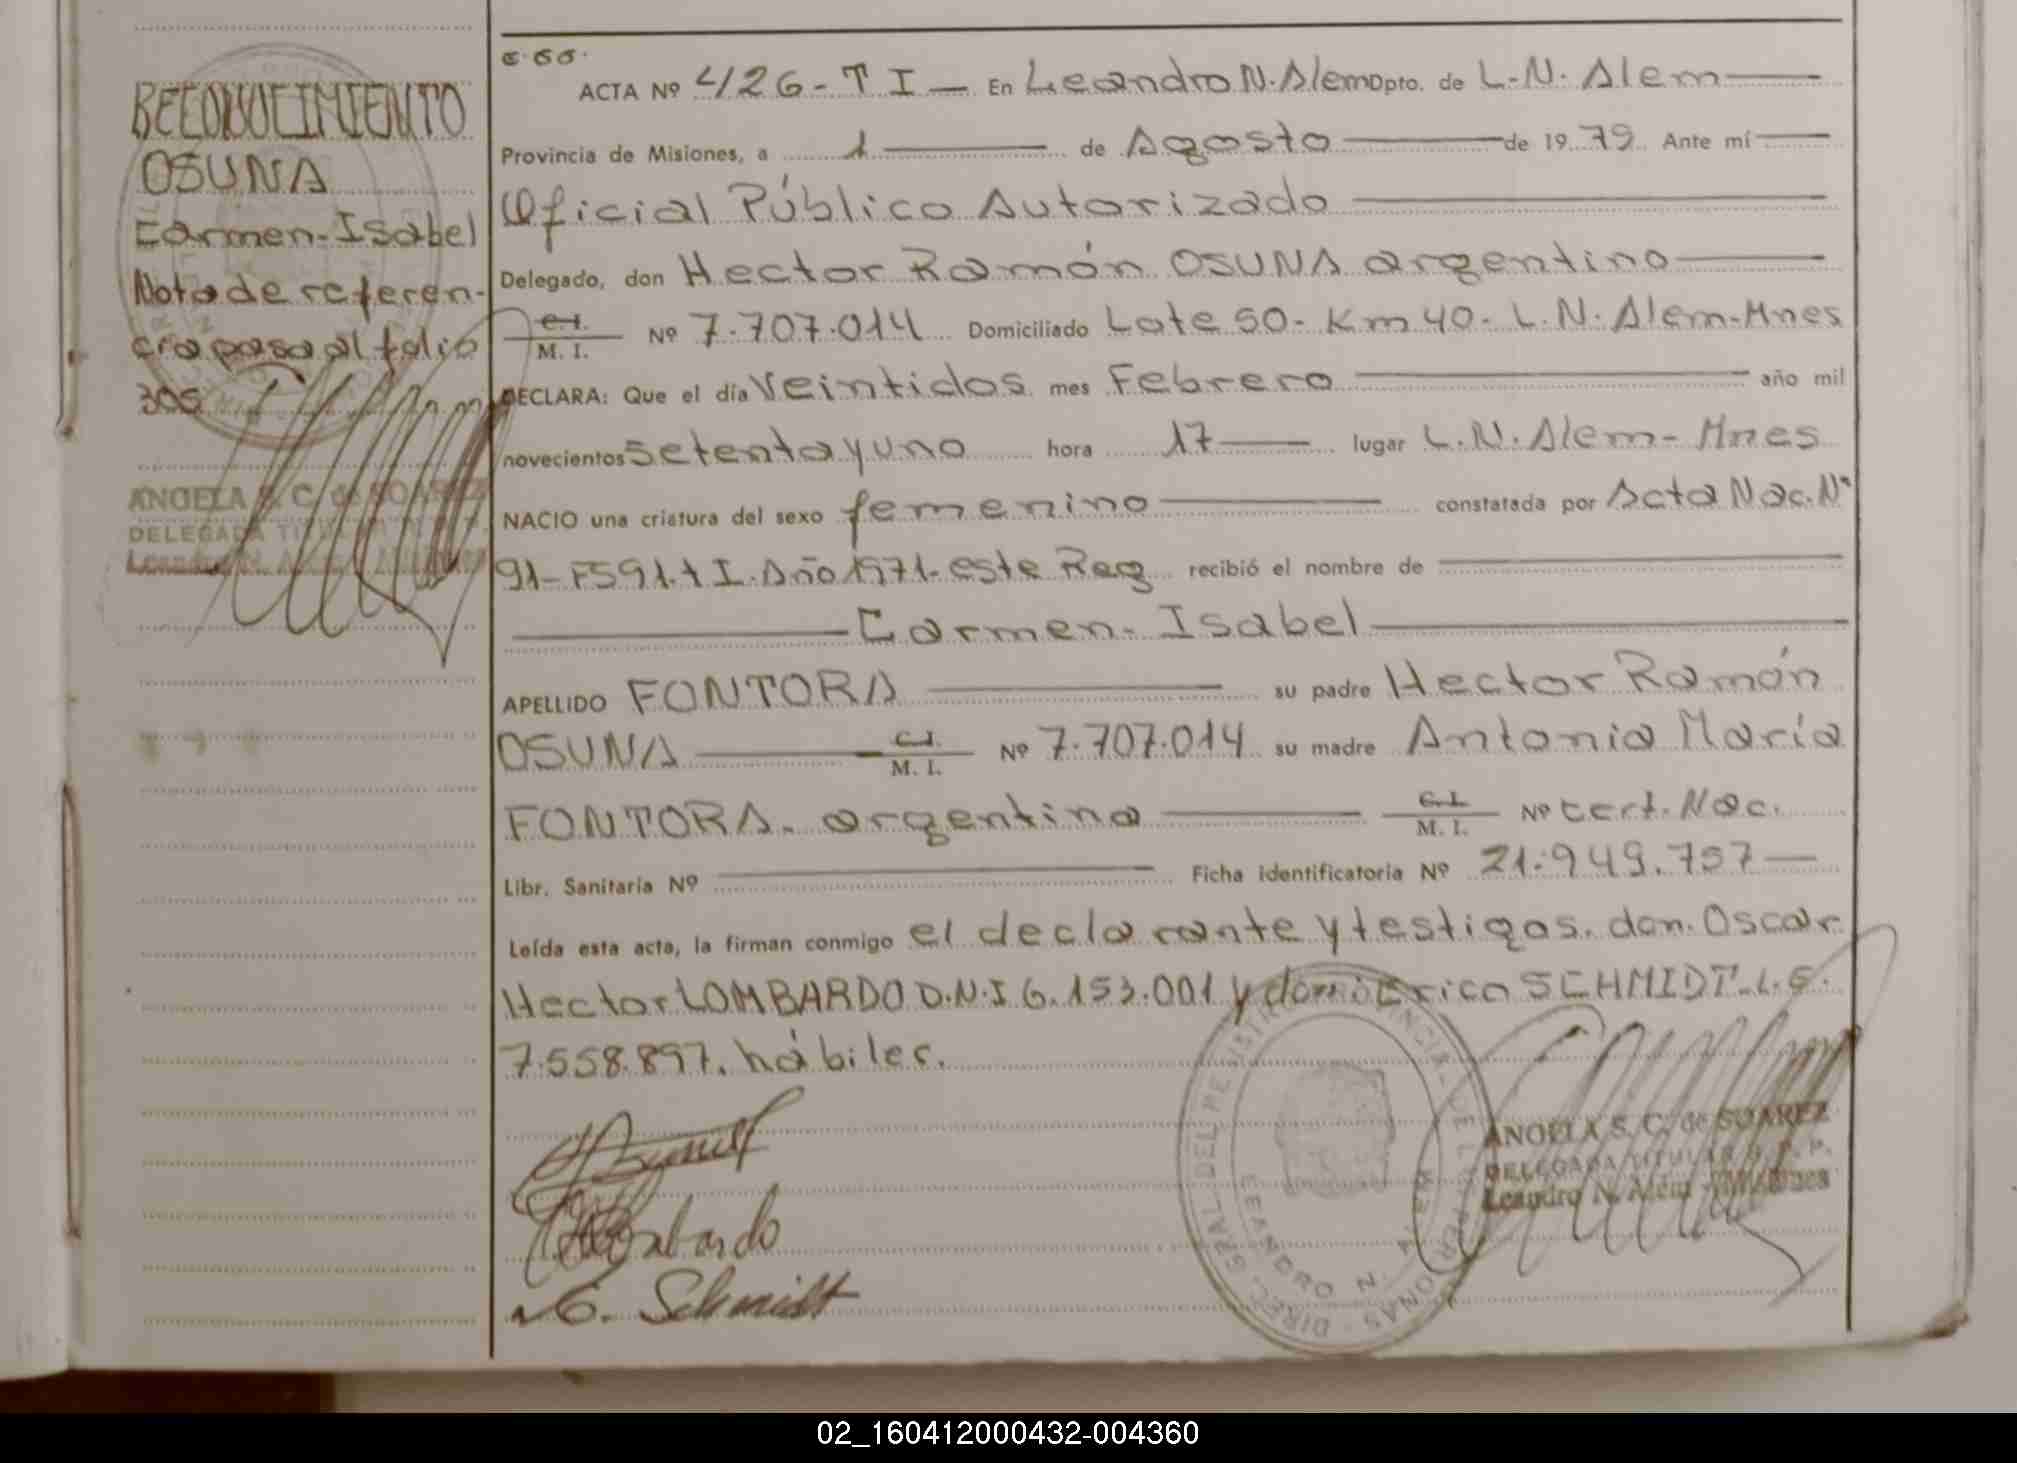 RECONOCIMIENTO
OSUNA
Carmen-Isabel
Nota de referen-
cia pasa al folio
305
ANGELA S. C. de SUAREZ
DELEGADA TITULAR
Leandro N. Alem Misiones
ACTA Nº 426-T I- En Leandro N. Alem Dpto. de L.N. Alem
Provincia de Misiones, a 1 de Agosto de 1979. Ante mí
Oficial Público Autorizado
Delegado, don Hector Ramón OSUNA argentino
C.I. M. I. Nº 7.707.014 Domiciliado Lote 50- Km 40- L.N. Alem-Mnes
DECLARA: Que el día Veintidos mes Febrero año mil
novecientos setenta y uno hora 17 lugar L.N. Alem- Mnes
NACIO una criatura del sexo femenino constatada por Acta Nac. Nº
91-Fs 91. t I. Año 1971- este Reg recibió el nombre de
Carmen- Isabel
APELLIDO FONTORA su padre Hector Ramón
OSUNA C.I. M. I. Nº 7.707.014 su madre Antonia María
FONTORA. argentina C.I. M. I. Nº cert. Nac.
Libr. Sanitaria Nº Ficha identificatoria Nº 21.949.757
Leída esta acta, la firman conmigo el declarante y testigos. don. Oscar
Hector LOMBARDO D.N.I 6.153.001 y don Erico SCHMIDT-L.E.
7.558.897. hábiles.
Lombardo
E. Schmidt
DIREC. GRAL. DEL REGISTRO PROVINCIAL DE LAS PERSONAS
LEANDRO N. ALEM
ANGELA S. C. de SUAREZ
DELEGADA TITULAR R. P. P.
Leandro N. Alem - Misiones
02_160412000432-004360